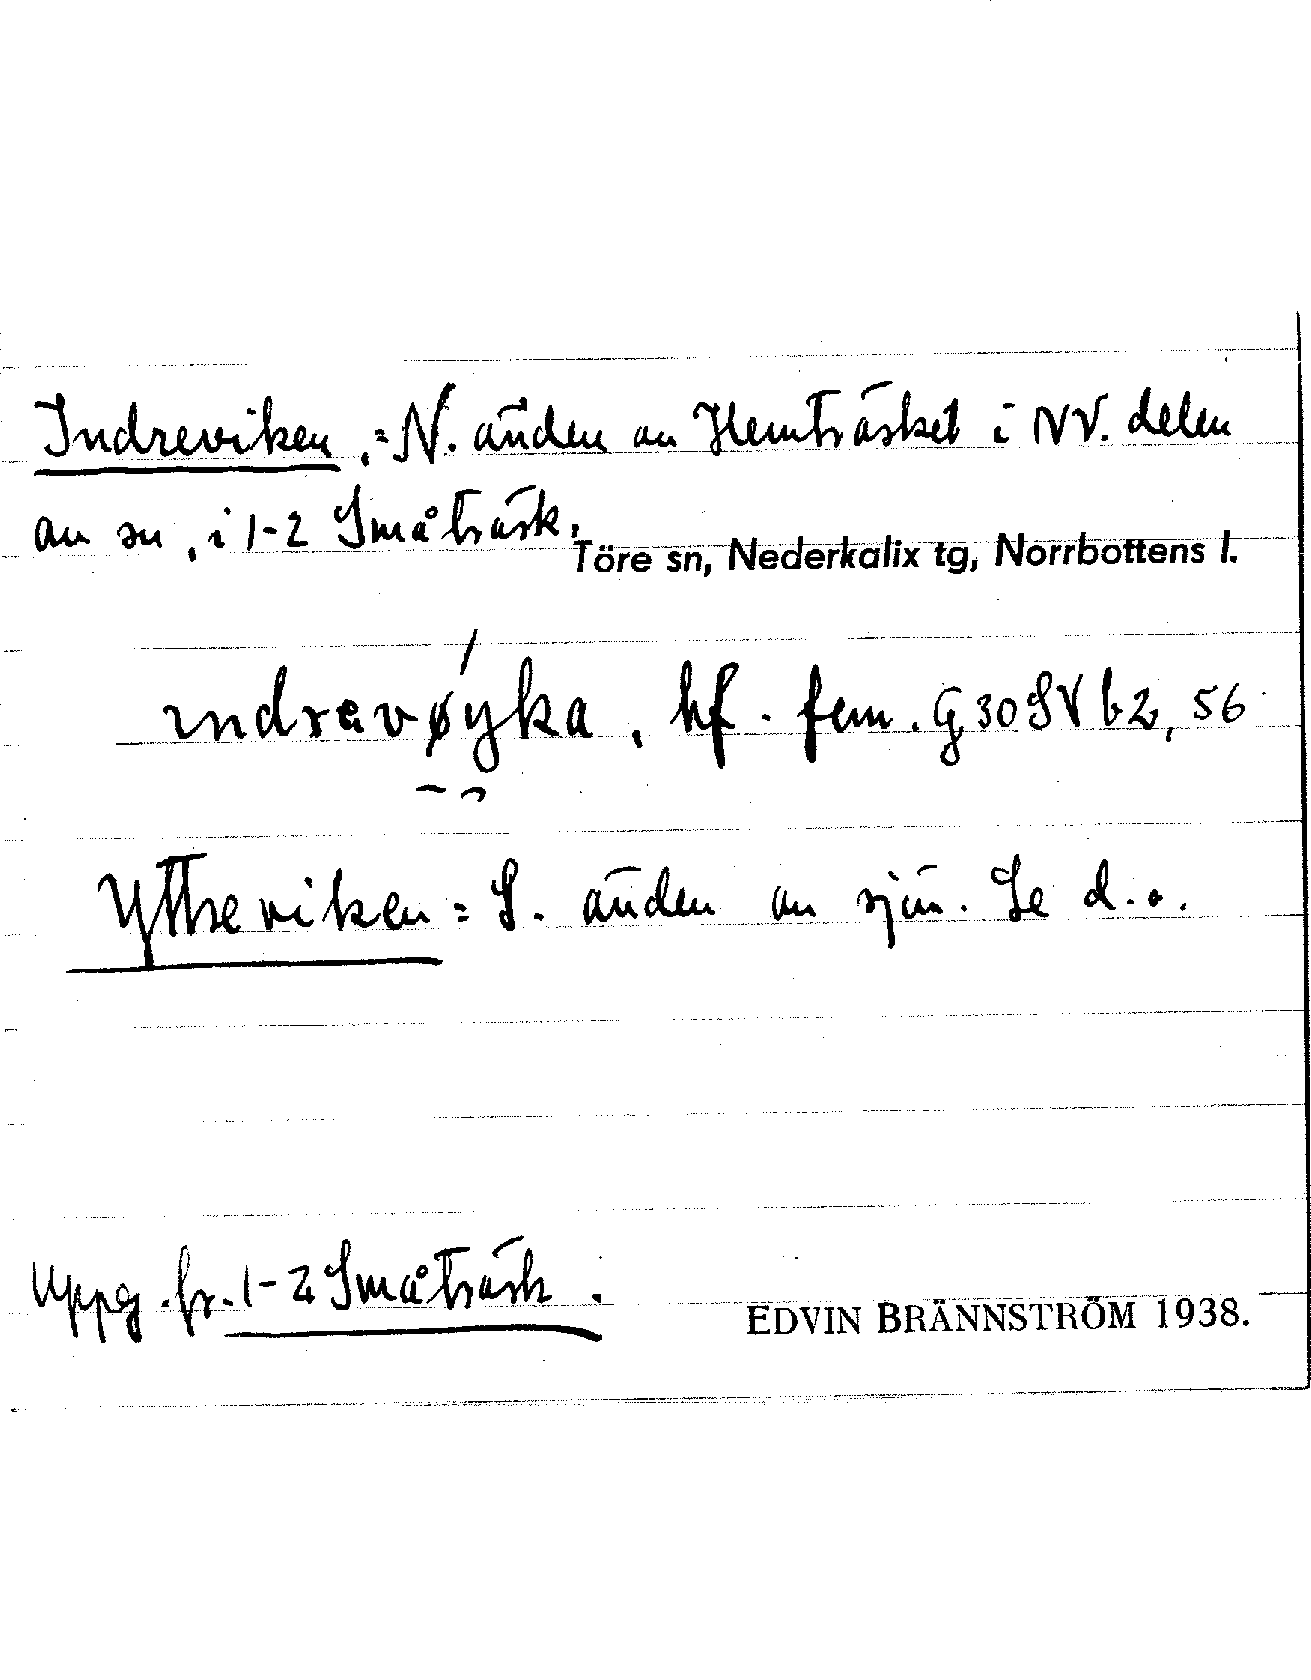 Indreviken, = N. änden av Hemträsket i NV. delen
av sn, i 1-2 Småträsk.
Töre sn, Nederkalix tg, Norrbottens l.
ındravøyka, bf. fem. G 30 SV b2, 56
Yttreviken = S. änden av sjön. Se d. o.
Uppg. fr. 1-2 Småträsk.
EDVIN BRÄNNSTRÖM 1938.